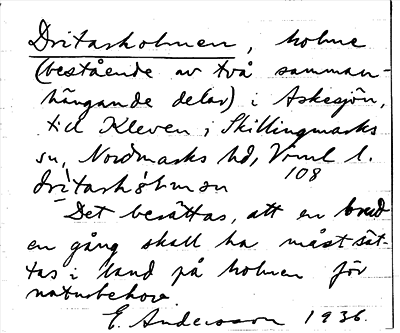 Dritarholmen, holme
(bestående av två samman-
hängande delar) i Askesjön,
till Kleven i Skillingmarks
sn, Nordmarks hd, Vrml l.
108
drı̀tarhòlmən
Det berättas, att en brud
en gång skall ha måst sät-
tas i land på holmen för
naturbehov.
E. Andersson 1936.